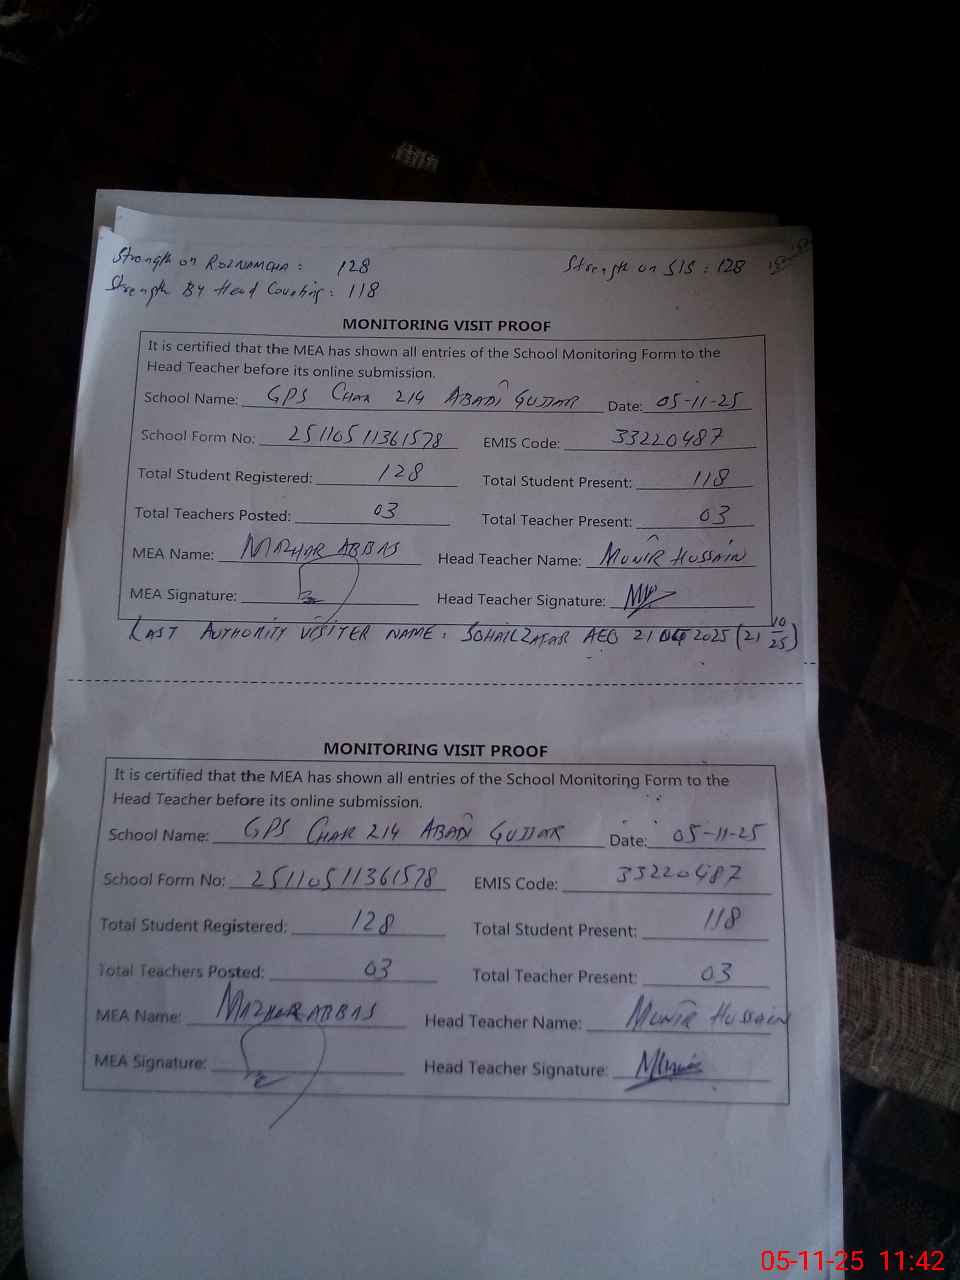 Strength on ROZNAMCHA : 128 Strength on SIS : 128
Strength BY Head Counting : 118
MONITORING VISIT PROOF
It is certified that the MEA has shown all entries of the School Monitoring Form to the
Head Teacher before its online submission.
School Name: GPS CHAK 214 ABADI GUJJAR Date: 05-11-25
School Form No: 25110511361578 EMIS Code: 33220487
Total Student Registered: 128 Total Student Present: 118
Total Teachers Posted: 03 Total Teacher Present: 03
MEA Name: MAZHAR ABBAS Head Teacher Name: MUNIR HUSSAIN
MEA Signature: Head Teacher Signature:
LAST AUTHORITY VISITER NAME : SOHAIL ZAFAR AEO 21 OCT 2025 (21 10 25)
MONITORING VISIT PROOF
It is certified that the MEA has shown all entries of the School Monitoring Form to the
Head Teacher before its online submission.
School Name: GPS CHAK 214 ABADI GUJJAR Date: 05-11-25
School Form No: 25110511361578 EMIS Code: 33220487
Total Student Registered: 128 Total Student Present: 118
Total Teachers Posted: 03 Total Teacher Present: 03
MEA Name: MAZHAR ABBAS Head Teacher Name: MUNIR HUSSAIN
MEA Signature: Head Teacher Signature:
05-11-25 11:42